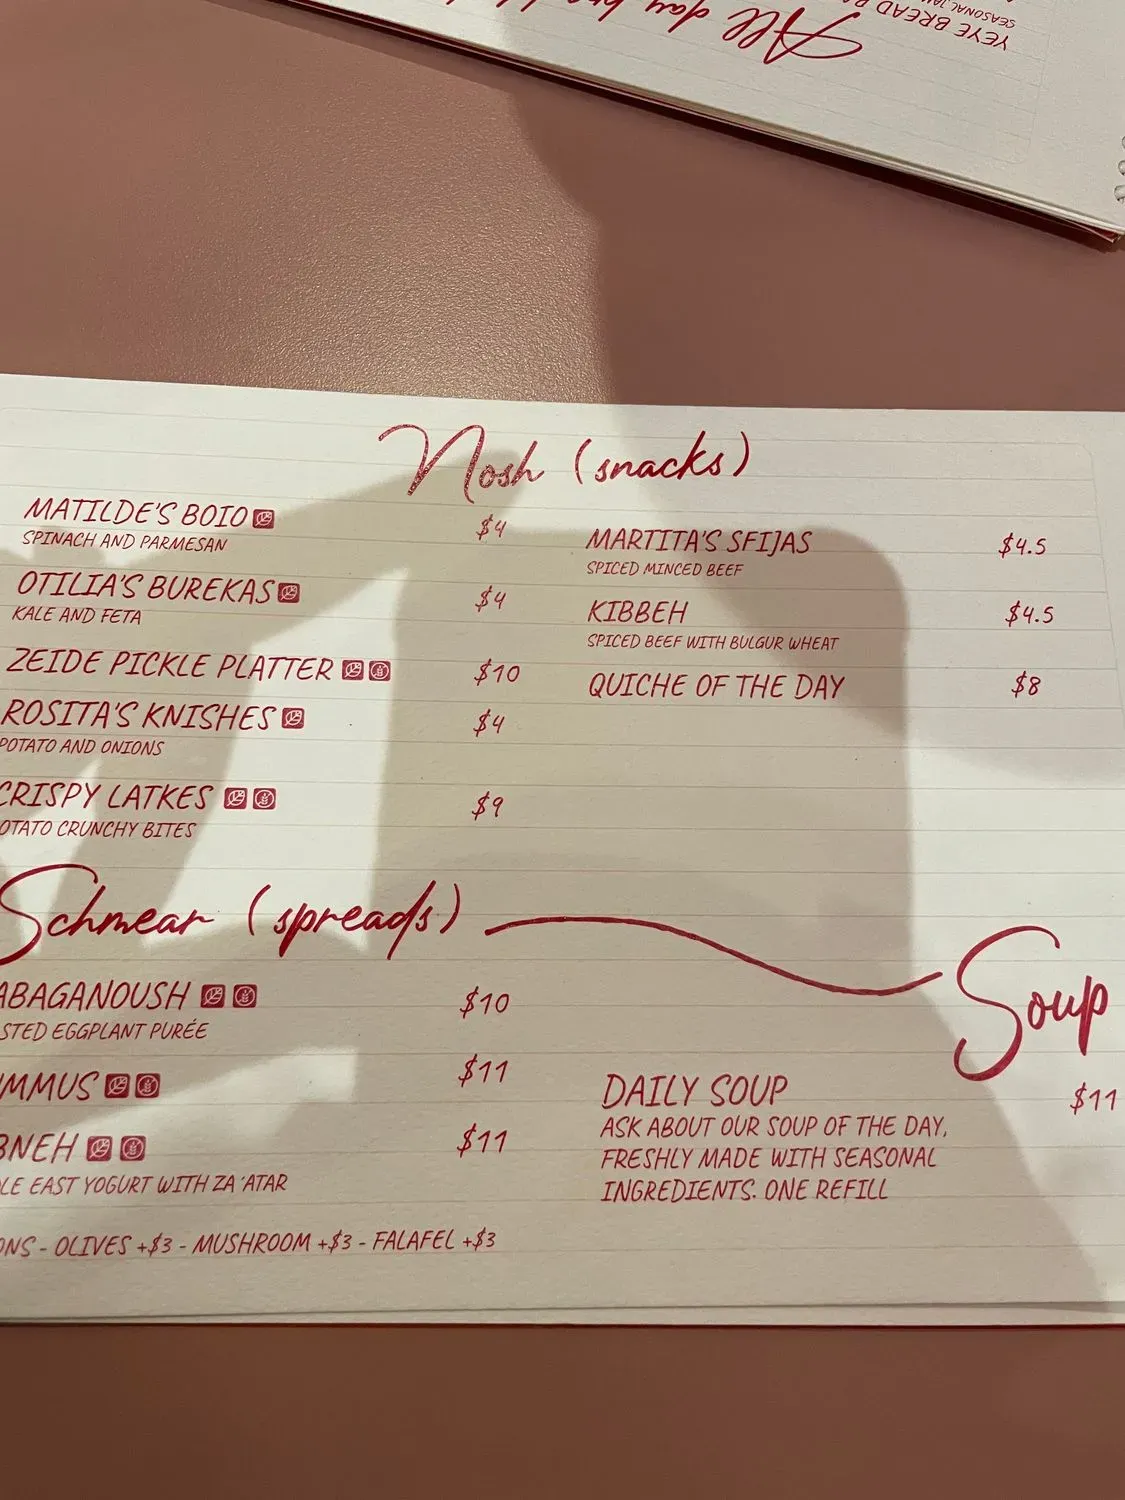 All day
YEYE BREAD
SEASONAL
Nosh (snacks)
MATILDE'S BOIO $4
SPINACH AND PARMESAN
OTILIA'S BUREKAS $4
KALE AND FETA
ZEIDE PICKLE PLATTER $10
ROSITA'S KNISHES $4
POTATO AND ONIONS
CRISPY LATKES $9
OTATO CRUNCHY BITES
MARTITA'S SFIJAS $4.5
SPICED MINCED BEEF
KIBBEH $4.5
SPICED BEEF WITH BULGUR WHEAT
QUICHE OF THE DAY $8
Schmear (spreads)
ABAGANOUSH $10
STED EGGPLANT PURÉE
MMUS $11
BNEH $11
LE EAST YOGURT WITH ZA'ATAR
ONS - OLIVES +$3 - MUSHROOM +$3 - FALAFEL +$3
Soup
DAILY SOUP $11
ASK ABOUT OUR SOUP OF THE DAY,
FRESHLY MADE WITH SEASONAL
INGREDIENTS. ONE REFILL